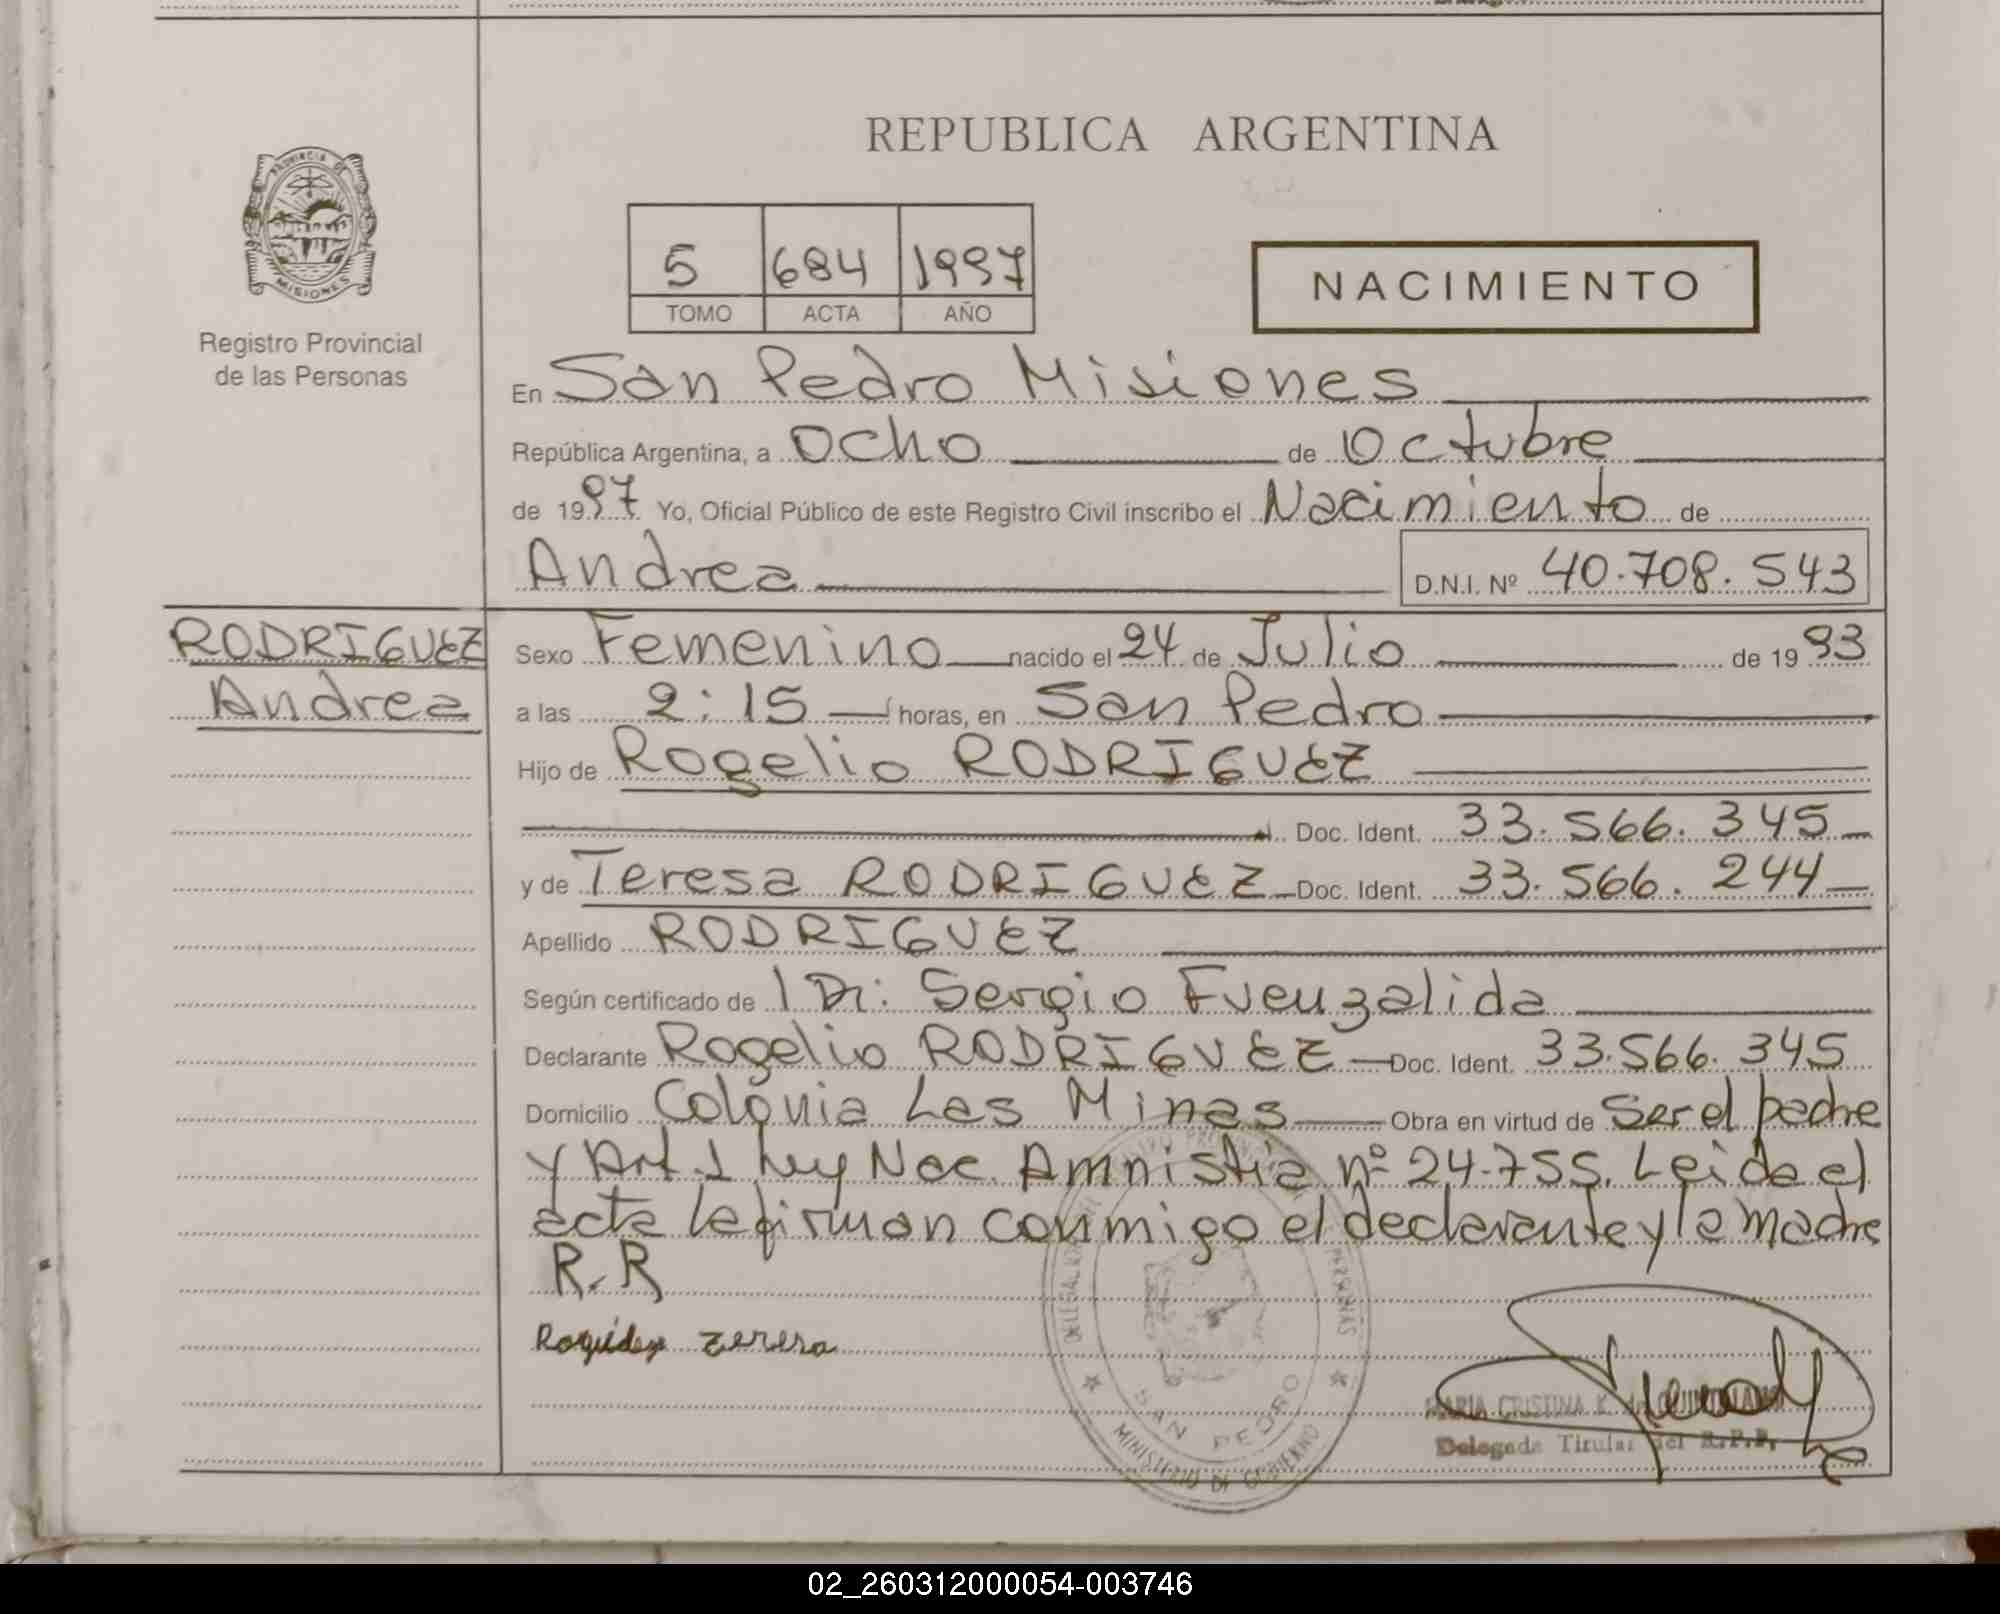 REPUBLICA ARGENTINA
PROVINCIA DE
MISIONES
Registro Provincial
de las Personas
5 684 1997
TOMO ACTA AÑO
NACIMIENTO
En San Pedro Misiones
República Argentina, a Ocho de Octubre
de 1997 Yo, Oficial Público de este Registro Civil inscribo el Nacimiento de
Andrea D.N.I. Nº 40.708.543
RODRIGUEZ
Andrea
Sexo Femenino nacido el 24 de Julio de 1993
a las 2:15 horas, en San Pedro
Hijo de Rogelio RODRIGUEZ
Doc. Ident. 33.566.345
y de Teresa RODRIGUEZ Doc. Ident. 33.566.244
Apellido RODRIGUEZ
Según certificado de l Dr: Sergio Fuenzalida
Declarante Rogelio RODRIGUEZ Doc. Ident. 33.566.345
Domicilio Colonia Las Minas Obra en virtud de Ser el padre
y Art. 1 Ley Nac. Amnistia nº 24.755. Leida el
acta la firman conmigo el declarante y la madre
R.R
zeresa
SAN PEDRO
MINISTERIO DE GOBIERNO
MARIA CRISTINA K. de
Delegada Titular del R.P.P.
02_260312000054-003746